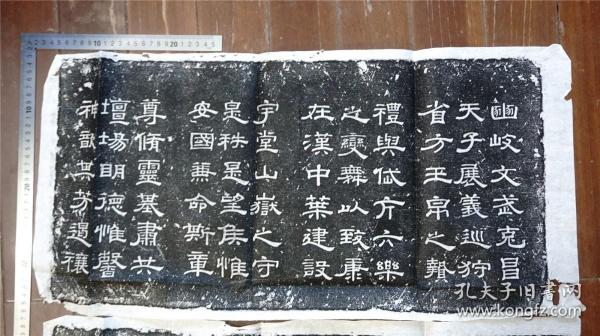 豳岐文武克昌
天子展義巡狩
省方玉帛之贄
禮與岱亢六樂
之變舞以致康
在漢中葉建設
宇堂山嶽之守
是秩是望侯惟
安國兼命斯章
尊脩靈基肅共
壇場明德惟馨
神歆其芳遏禳
孔夫子旧书网